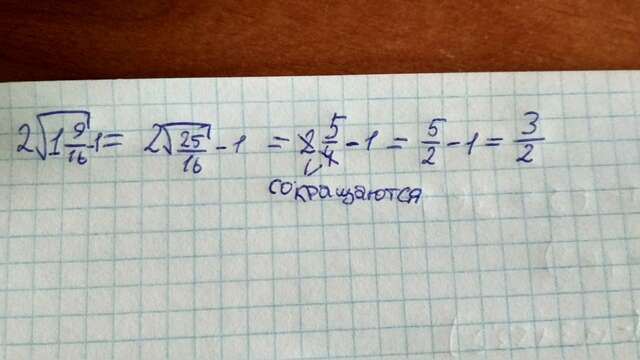 2√1 9/16 -1 = 2√25/16 -1 = 2 5/4 -1 = 5/2 -1 = 3/2
сокращаются